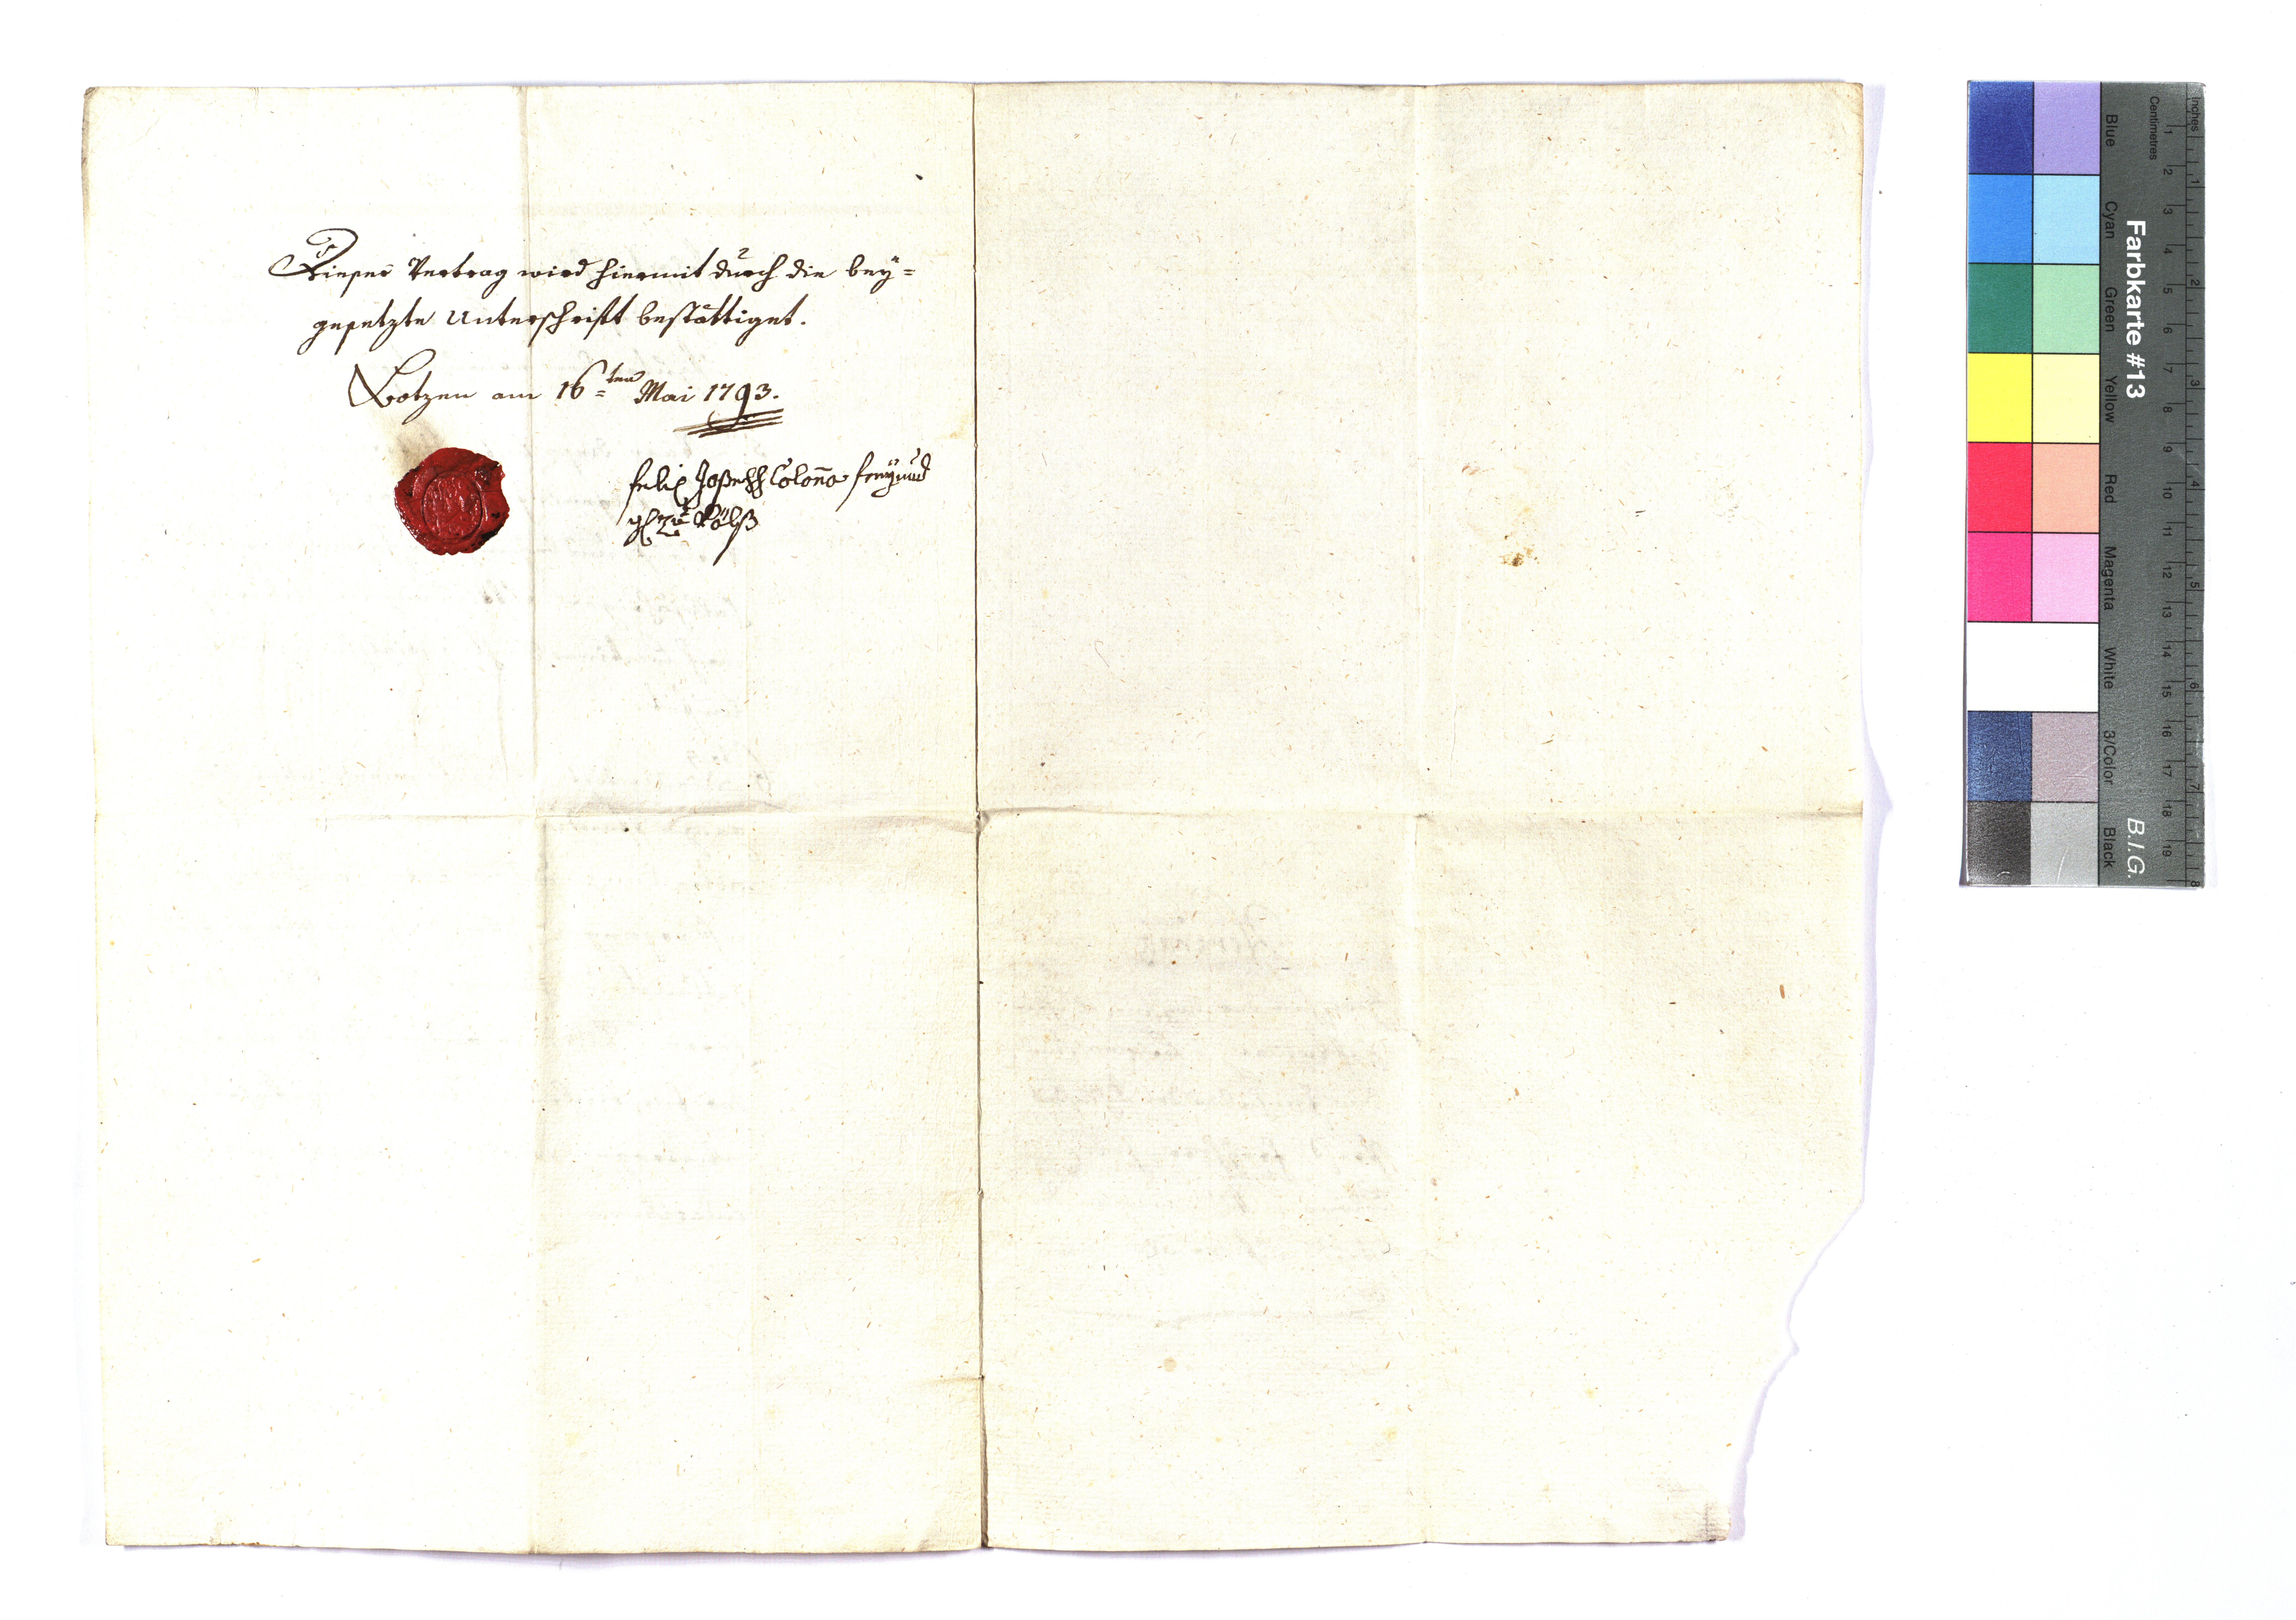 Dieser Vertrag wird hiermit durch die bey=
gesetzte Unterschrift bestättiget.
Botzen am 16=ten Mai 1793.
Felix Joseph Colona freÿ und
zu Völß
Farbkarte #13
B.I.G.
Inches 1 2 3 4 5 6 7 8
Centimetres 1 2 3 4 5 6 7 8 9 10 11 12 13 14 15 16 17 18 19
Blue Cyan Green Yellow Red Magenta White 3/Color Black